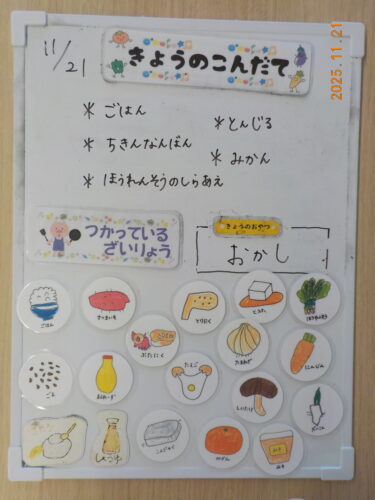 11/21
きょうのこんだて
2025.11.21
* ごはん
* とんじる
* ちきんなんばん
* みかん
* ほうれんそうのしらあえ
つかっている
ざいりょう
きょうのおやつ
おかし
ごはん
さつまいも
とりにく
とうふ
ほうれんそう
ぶたにく
たまねぎ
にんじん
ごま
まよねーず
たまご
しいたけ
だいこん
しょうゆ
こんにゃく
みかん
みそ